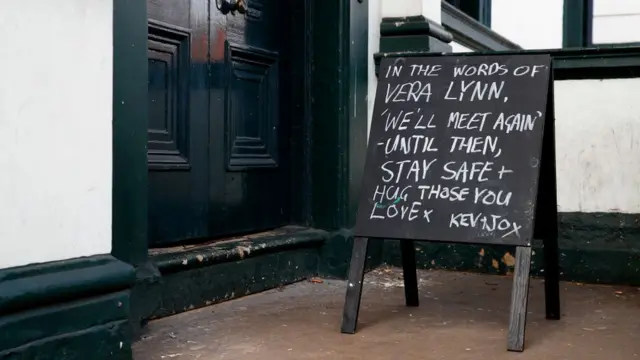 IN THE WORDS OF
VERA LYNN,
'WE'LL MEET AGAIN'
-UNTIL THEN,
STAY SAFE +
HUG THOSE YOU
LOVE x KEV+JO X